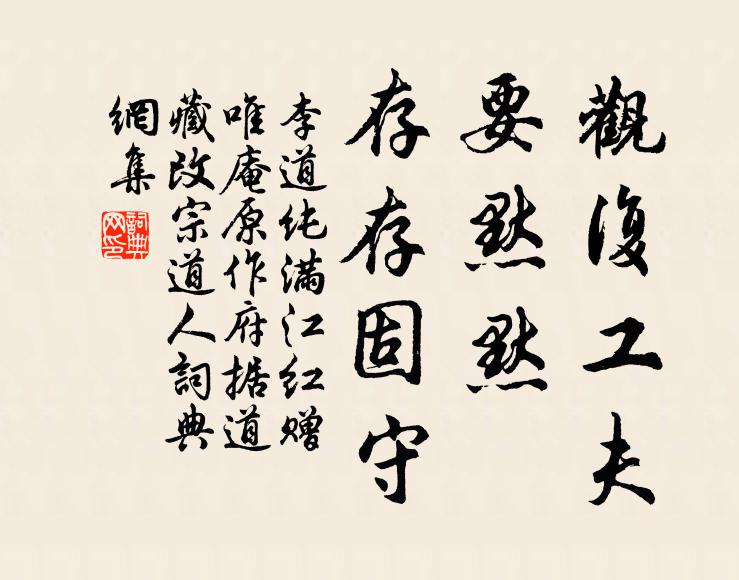 觀復工夫
要默默
存存固守
李道纯滿江红赠
唯庵原作府据道
藏改宗道人詞典
網集
詞典網印